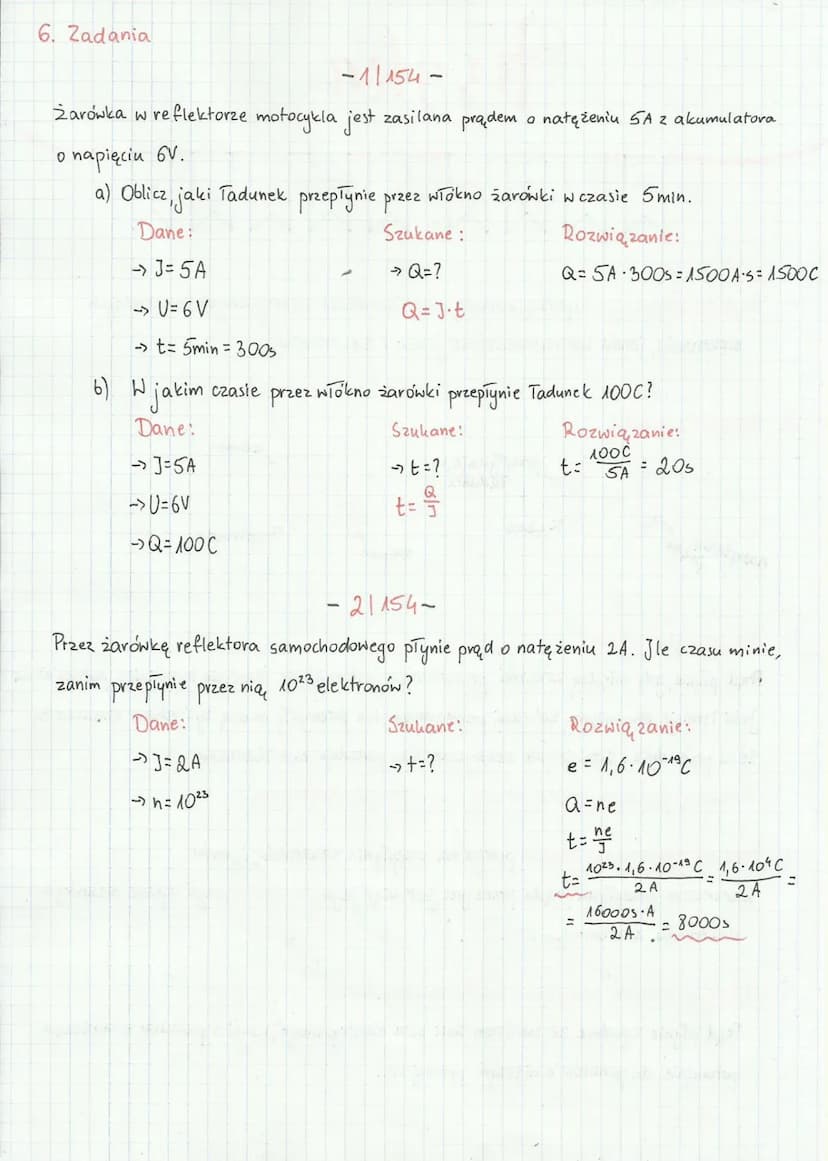 6. Zadania
-1/154-
Żarówka w reflektorze motocykla jest zasilana prądem o natężeniu 5A z akumulatora
o napięciu 6V.
a) Oblicz, jaki ładunek przepłynie przez włókno żarówki w czasie 5min.
Dane: Szukane: Rozwiązanie:
→ J=5A → Q=? Q=5A·300s=1500A·s=1500C
→ U=6V Q=J·t
→ t=5min=300s
b) W jakim czasie przez włókno żarówki przepłynie ładunek 100C?
Dane: Szukane: Rozwiązanie:
→ J=5A → t=? t=100C/5A=20s
→ U=6V t=Q/J
→ Q=100C
-2/154-
Przez żarówkę reflektora samochodowego płynie prąd o natężeniu 2A. Jle czasu minie,
zanim przepłynie przez nią 10²³ elektronów?
Dane: Szukane: Rozwiązanie:
→ J=2A → t=? e=1,6·10⁻¹⁹C
→ n=10²³ Q=ne
t=ne/J
t=10²³·1,6·10⁻¹⁹C/2A=1,6·10⁴C/2A=
=16000s·A/2A=8000s